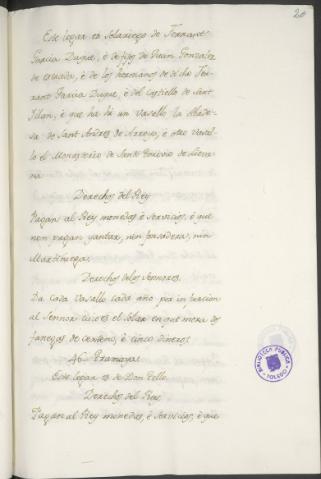 20
Este logar es Solariego de Ferrant
Garcia Duque, è de fijos de Juan Gonzalez
de è de los hermanos de dicho Fer-
rant Garcia Duque, è del Castiello de Sant
è que ha hi un Vasallo la Abade-
sa de Sant Andres de Arroyo, è otro Vasa-
llo el Monesterio de Sant de
na
Derechos del Rey
Pagan al Rey monedas è servicios, è que
non pagan yantar, nin fonsadera, nin
Martiniega.
Derechos de los Sennores.
Da cada Vasallo cada año por infurcion
al Sennor cuio es el Solar en que mora dos
fanegas de centeno, è cinco dineros
46 Pramoya
Este logar es de Don Tello
Derechos del Rey
Pagan al Rey monedas, è servicios, è que
BIBLIOTECA PUBLICA
TOLEDO